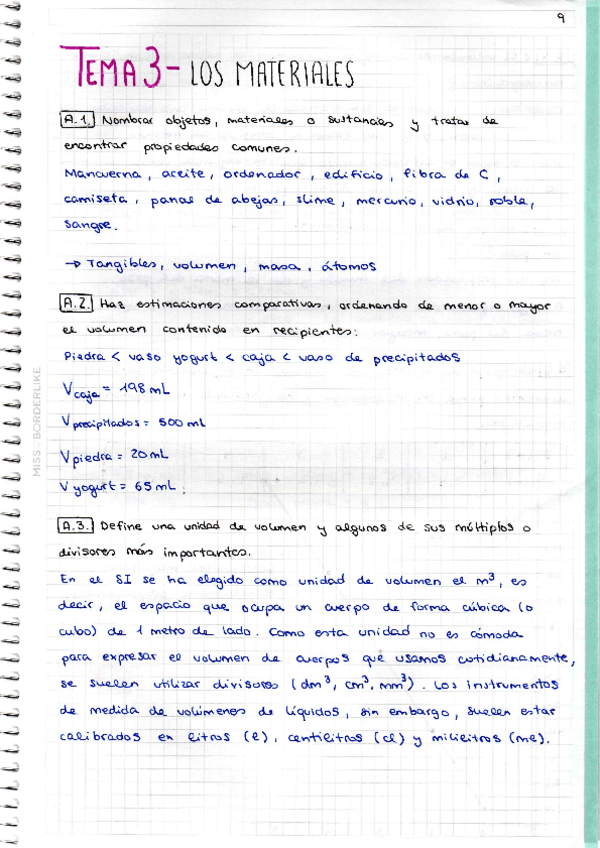 9
TEMA 3- LOS MATERIALES
A.1. Nombrar objetos, materiales o sustancias y tratar de
encontrar propiedades comunes.
Mancuerna, aceite, ordenador, edificio, fibra de C,
camiseta, panal de abejas, slime, mercurio, vidrio, roble,
sangre.
→ Tangibles, volumen, masa, átomos
A.2. Haz estimaciones comparativas, ordenando de menor a mayor
el volumen contenido en recipientes:
Piedra < vaso yogurt < caja < vaso de precipitados
V caja = 198 mL
V precipitados = 500 mL
V piedra = 20 mL
V yogurt = 65 mL.
A.3. Define una unidad de volumen y algunos de sus múltiplos o
divisores más importantes.
En el SI se ha elegido como unidad de volumen el m³, es
decir, el espacio que ocupa un cuerpo de forma cúbica (o
cubo) de 1 metro de lado. Como esta unidad no es cómoda
para expresar el volumen de cuerpos que usamos cotidianamente,
se suelen utilizar divisores (dm³, cm³, mm³). Los instrumentos
de medida de volúmenes de líquidos, sin embargo, suelen estar
calibrados en litros (l), centilitros (cl) y mililitros (ml).
MISS BORDERLIKE